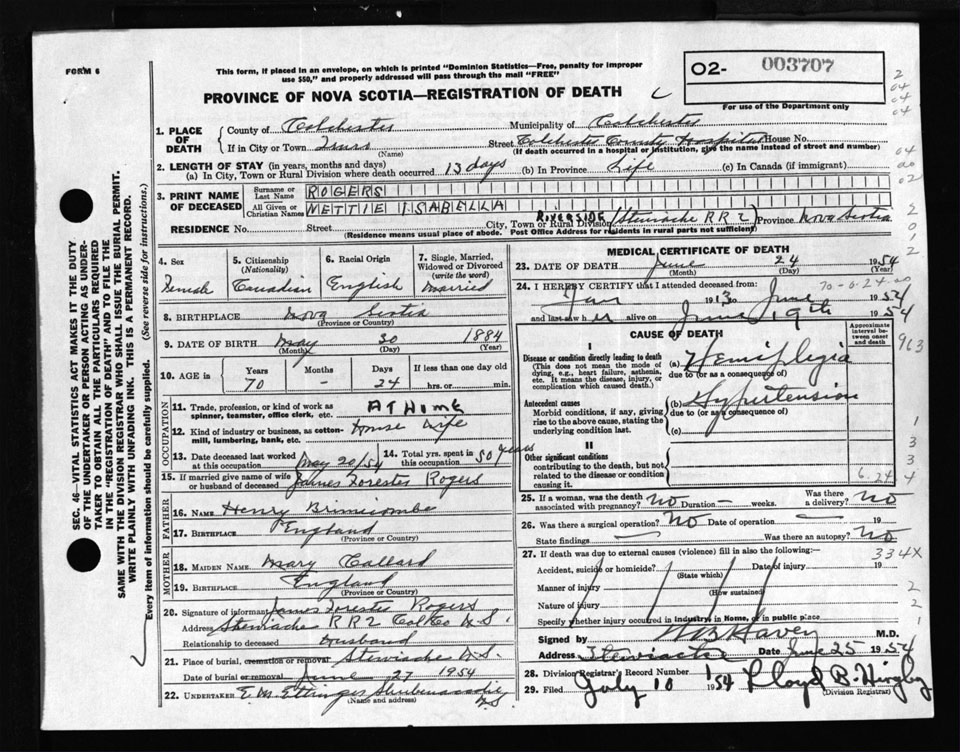 FORM 6
This form, if placed in an envelope, on which is printed "Dominion Statistics—Free, penalty for improper
use $50," and properly addressed will pass through the mail "FREE"
PROVINCE OF NOVA SCOTIA—REGISTRATION OF DEATH
O2- 003707
For use of the Department only
1. PLACE OF DEATH
County of Colchester Municipality of Colchester
If in City or Town Truro Street Colchester County Hospital House No.
(Name) (If death occurred in a hospital or institution, give the name instead of street and number)
2. LENGTH OF STAY (in years, months and days)
(a) In City, Town or Rural Division where death occurred 13 days (b) In Province Life (c) In Canada (if immigrant)
3. PRINT NAME OF DECEASED
Surname or Last Name ROGERS
All Given or Christian Names NETTIE ISABELLA
RESIDENCE No. Street City, Town or Rural Division RIVERSIDE (Stewiacke RR 2) Province Nova Scotia
(Residence means usual place of abode. Post Office Address for residents in rural parts not sufficient)
4. Sex Female
5. Citizenship (Nationality) Canadian
6. Racial Origin English
7. Single, Married, Widowed or Divorced (write the word) Married
8. BIRTHPLACE Nova Scotia
(Province or Country)
9. DATE OF BIRTH May 30 1884
(Month) (Day) (Year)
10. AGE in Years 70 Months - Days 24 If less than one day hrs. or min.
OCCUPATION
11. Trade, profession, or kind of work as spinner, teamster, office clerk, etc. AT HOME
12. Kind of industry or business, as cotton-mill, lumbering, bank, etc. House Wife
13. Date deceased last worked at this occupation May 20/54
14. Total yrs. spent in this occupation 50 years
15. If married give name of wife or husband of deceased James Forester Rogers
FATHER
16. Name Henry Brimicombe
17. Birthplace England
(Province or Country)
MOTHER
18. Maiden Name Mary
19. Birthplace England
(Province or Country)
20. Signature of informant James Forester Rogers
Address Stewiacke RR2 Col Co N.S.
Relationship to deceased husband
21. Place of burial, cremation or removal Stewiacke N.S.
Date of burial or removal June 27 1954
22. UNDERTAKER E. M. Ettinger Shubenacadie N.S
(Name and address)
MEDICAL CERTIFICATE OF DEATH
23. DATE OF DEATH June 24 1954
(Month) (Day) (Year)
24. I HEREBY CERTIFY that I attended deceased from:
Jan 1930 June 1954
and last saw her alive on June 19th 1954
70-0-24-20
CAUSE OF DEATH
Approximate interval between onset and death
I
Disease or condition directly leading to death
(This does not mean the mode of dying, e.g., heart failure, asthenia, etc. It means the disease, injury, or complication which caused death.)
(a) Hemiplegia
due to (or as a consequence of)
Antecedent causes
Morbid conditions, if any, giving rise to the above cause, stating the underlying condition last.
(b) Hypertension
due to (or as a consequence of)
(c)
II
Other significant conditions
contributing to the death, but not related to the disease or condition causing it.
6.24
25. If a woman, was the death associated with pregnancy? No Duration – weeks. Was there a delivery? No
26. Was there a surgical operation? No Date of operation 19
State findings Was there an autopsy? No
27. If death was due to external causes (violence) fill in also the following:
334X
Accident, suicide or homicide? Date of injury 19
(State which)
Manner of injury
(How sustained)
Nature of injury
Specify whether injury occurred in industry, in Home, or in public place
Signed by W B Havey M.D.
Address Stewiacke Date June 25 1954
28. Division Registrar's Record Number 1
29. Filed July 10 1954 Lloyd B.
(Division Registrar)
SEC. 46—VITAL STATISTICS ACT MAKES IT THE DUTY
OF THE UNDERTAKER OR PERSON ACTING AS UNDER-
TAKER TO OBTAIN ALL THE PARTICULARS REQUIRED
IN THE "REGISTRATION OF DEATH" AND TO FILE THE
SAME WITH THE DIVISION REGISTRAR WHO SHALL ISSUE THE BURIAL PERMIT.
WRITE PLAINLY WITH UNFADING INK. THIS IS A PERMANENT RECORD.
Every item of information should be carefully supplied. (See reverse side for instructions.)